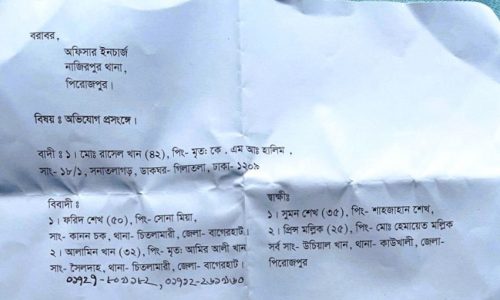 বরাবর,
অফিসার ইনচার্জ
নাজিরপুর থানা,
পিরোজপুর।
বিষয় ঃ অভিযোগ প্রসংঙ্গে।
বাদী ঃ ১। মোঃ রাসেল খান (৪২), পিং- মৃতঃ কে, এম আঃ হালিম,
সাং- ১৮/১, সনাতলাগড়, ডাকঘর- গিলাতলা, ঢাকা- ১২০৯
বিবাদী ঃ
১। ফরিদ শেখ (৫০), পিং- সোনা মিয়া,
সাং- কানন চক, থানা- চিতলামারী, জেলা- বাগেরহাট।
২। আলামিন খান (৩২), পিং- মৃতঃ আমির আলী খান
সাং- সৈলদাহ, থানা- চিতলামারী, জেলা- বাগেরহাট।
স্বাক্ষীঃ
১। সুমন শেখ (৩৫), পিং- শাহজাহান শেখ,
২। প্রিন্স মল্লিক (২৫), পিং- মোঃ হেমায়েত মল্লিক
সর্ব সাং- উচিয়াল খান, থানা- কাউখালী, জেলা-
পিরোজপুর